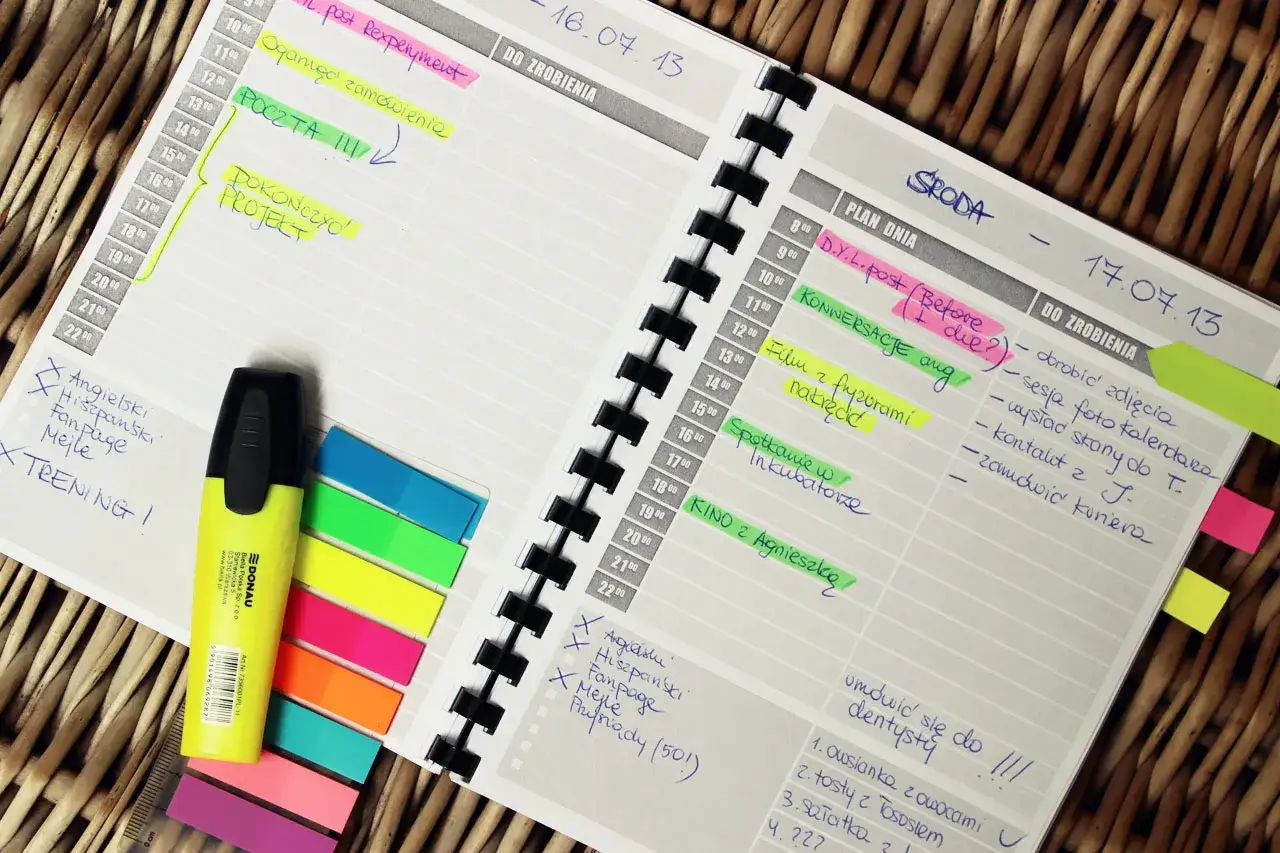 - 16.07.13
DO ZROBIENIA
9⁰⁰
10⁰⁰
11⁰⁰
12⁰⁰
13⁰⁰
14⁰⁰
15⁰⁰
16⁰⁰
17⁰⁰
18⁰⁰
19⁰⁰
20⁰⁰
21⁰⁰
22⁰⁰
post Rexperyment
Ogarnąć zamówienia
POCZTA !!!
DOKOŃCZYĆ
PROJEKT
X Angielski
X Hiszpański
Fanpage
Mejle
X TRENING!
DONAU
Biella Polska Sp. z o.o.
Staniewicka 5
03-310 Warszawa
www.biella.pl
ŚRODA - 17.07.13
PLAN DNIA
DO ZROBIENIA
8⁰⁰
9⁰⁰
10⁰⁰
11⁰⁰
12⁰⁰
13⁰⁰
14⁰⁰
15⁰⁰
16⁰⁰
17⁰⁰
18⁰⁰
19⁰⁰
20⁰⁰
21⁰⁰
22⁰⁰
D.Y.L. post (Before
+ dwie?)
KONWERSACJE ang
Film z fryzurami
nakręcić
Spotkanie w
Inkubatorze
KINO z Agnieszką
- dorobić zdjęcia
- sesja foto kalendarza
- wysłać skany do T.
- kontakt z J.
- zamówić kuriera
-
umówić się do
dentysty !!!
X Angielski
X Hiszpański
Fanpage
X Mejle
Przysiady (50!)
1. owsianka z owocami ✓
2. tosty z łososiem
3. sałatka z
4. ???